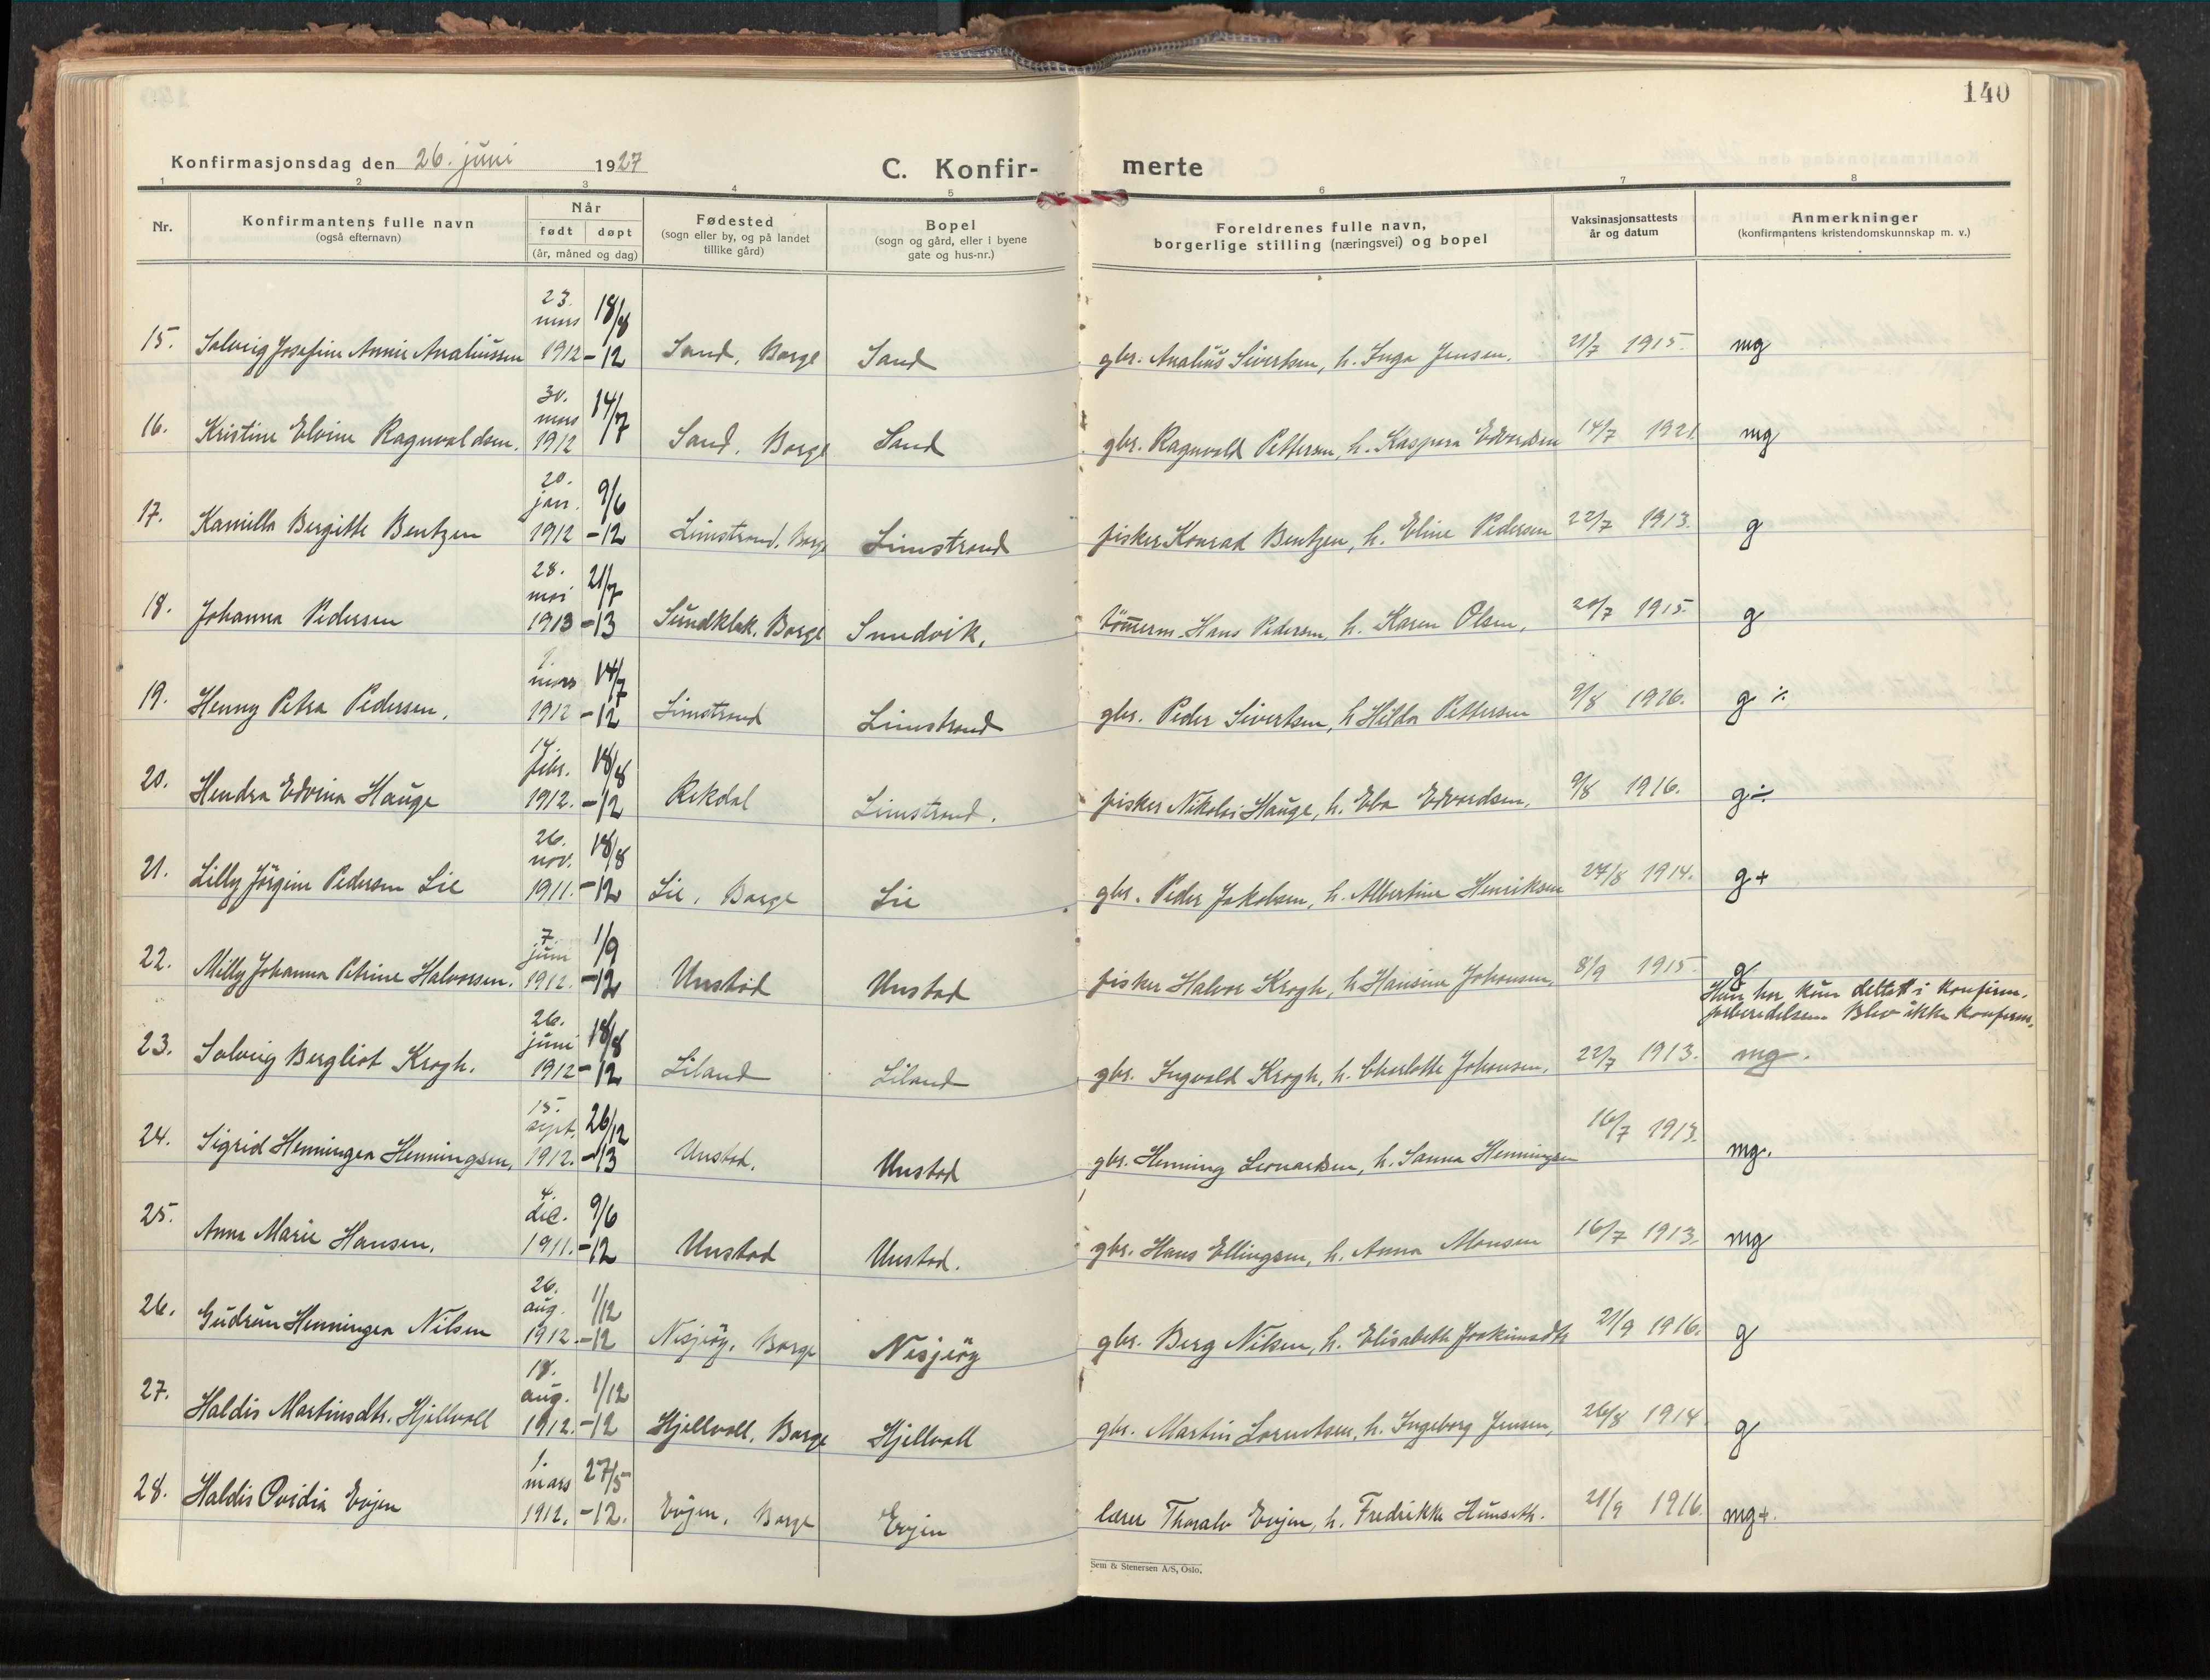 140
Konfirmasjonsdag den 26. juni 1927
C. Konfir- merte
1 2 3 4 5 6 7 8
Nr.
Konfirmantens fulle navn
(også efternavn)
Når
født døpt
(år, måned og dag)
Fødested
(sogn eller by, og på landet
tillike gård)
Bopel
(sogn og gård, eller i byene
gate og hus-nr.)
Foreldrenes fulle navn,
borgerlige stilling (næringsvei) og bopel
Vaksinasjonsattests
år og datum
Anmerkninger
(konfirmantens kristendomskunnskap m. v.)
23. mars 18/8
15. Solveig Josefine Annie Analiussen 1912 -12 Sand, Borge Sand gbr. Analius Sivertsen, h. Inga Jensen. 21/7 1915. mg
30. mars 14/7
16. Kristine Elvine Ragnvaldsen. 1912 Sand, Borge Sand gbr. Ragnvald Pettersen, h. Kaspara Edvardsen 14/7 1921 mg
20. jan. 9/6
17. Kamilla Bergitte Bentzen 1912 -12 Limstrand, Borge Limstrand fisker Konrad Bentzen, h. Eline Pedersen 22/7 1913. g
28. mai 21/7
18. Johanna Pedersen 1913 -13 Sundklak, Borge Sundvik. tömerm. Hans Pedersen, h. Karen Olsen. 20/7 1915. g
1. mars 14/7
19. Henny Petra Pedersen. 1912 -12 Limstrand Limstrand gbr. Peder Sivertsen, h Hilda Pettersen 9/8 1916. g ÷
14 febr. 18/8
20. Hendra Edvina Hauge 1912. -12 Rekdal Limstrand. fisker Nikolai Hauge, h. Eba Edvardsen. 9/8 1916. g ÷
26. nov. 18/8
21. Lilly Jörgine Pedersen Lie 1911. -12 Lie, Borge Lie gbr. Peder Jakobsen, h. Albertine Henriksen 27/8 1914. g +
7. juni 1/9
22. Milly Johanna Petrine Halvorsen. 1912. -12 Unstad Unstad fisker Halvor Krogh, h Hansine Johansen, 8/9 1915. g
Hun har kun deltatt i konfirm.
forberedelsen. Blev ikke konfirm.
26. juni 18/8
23. Solveig Bergliot Krogh. 1912 -12 Liland Liland gbr. Ingvald Krogh, h. Charlotte Johansen. 22/7 1913. mg.
15. sept. 26/12
24. Sigrid Henningea Henningsen, 1912. -13 Unstad. Unstad gbr. Henning Leonardsen, h. Sanna Henningsen 16/7 1913. mg.
4. dec. 9/6
25. Anna Marie Hansen. 1911. -12 Unstad Unstad. gbr. Hans Ellingsen, h. Anna Monsen 16/7 1913. mg
26. aug. 1/12
26. Gudrun Henningea Nilsen 1912. -12 Nesjeöy, Borge Nesjeöy gbr. Berg Nilsen, h. Elisabeth Joakimsdtr 21/9 1916. g
18. aug. 1/12
27. Haldis Martinsdtr. Hjellvoll 1912. -12 Hjellvoll, Borge Hjellvoll gbr. Martin Lorentsen, h. Ingeborg Jensen, 26/8 1914. g
1. mars 27/5
28. Haldis Ovidia Evjen 1912. -12. Evjen, Borge Evjen lærer Thoralv Evjen, h. Fredrikke Hunseth. 21/9 1916. mg+.
Sem & Stenersen A/S, Oslo.